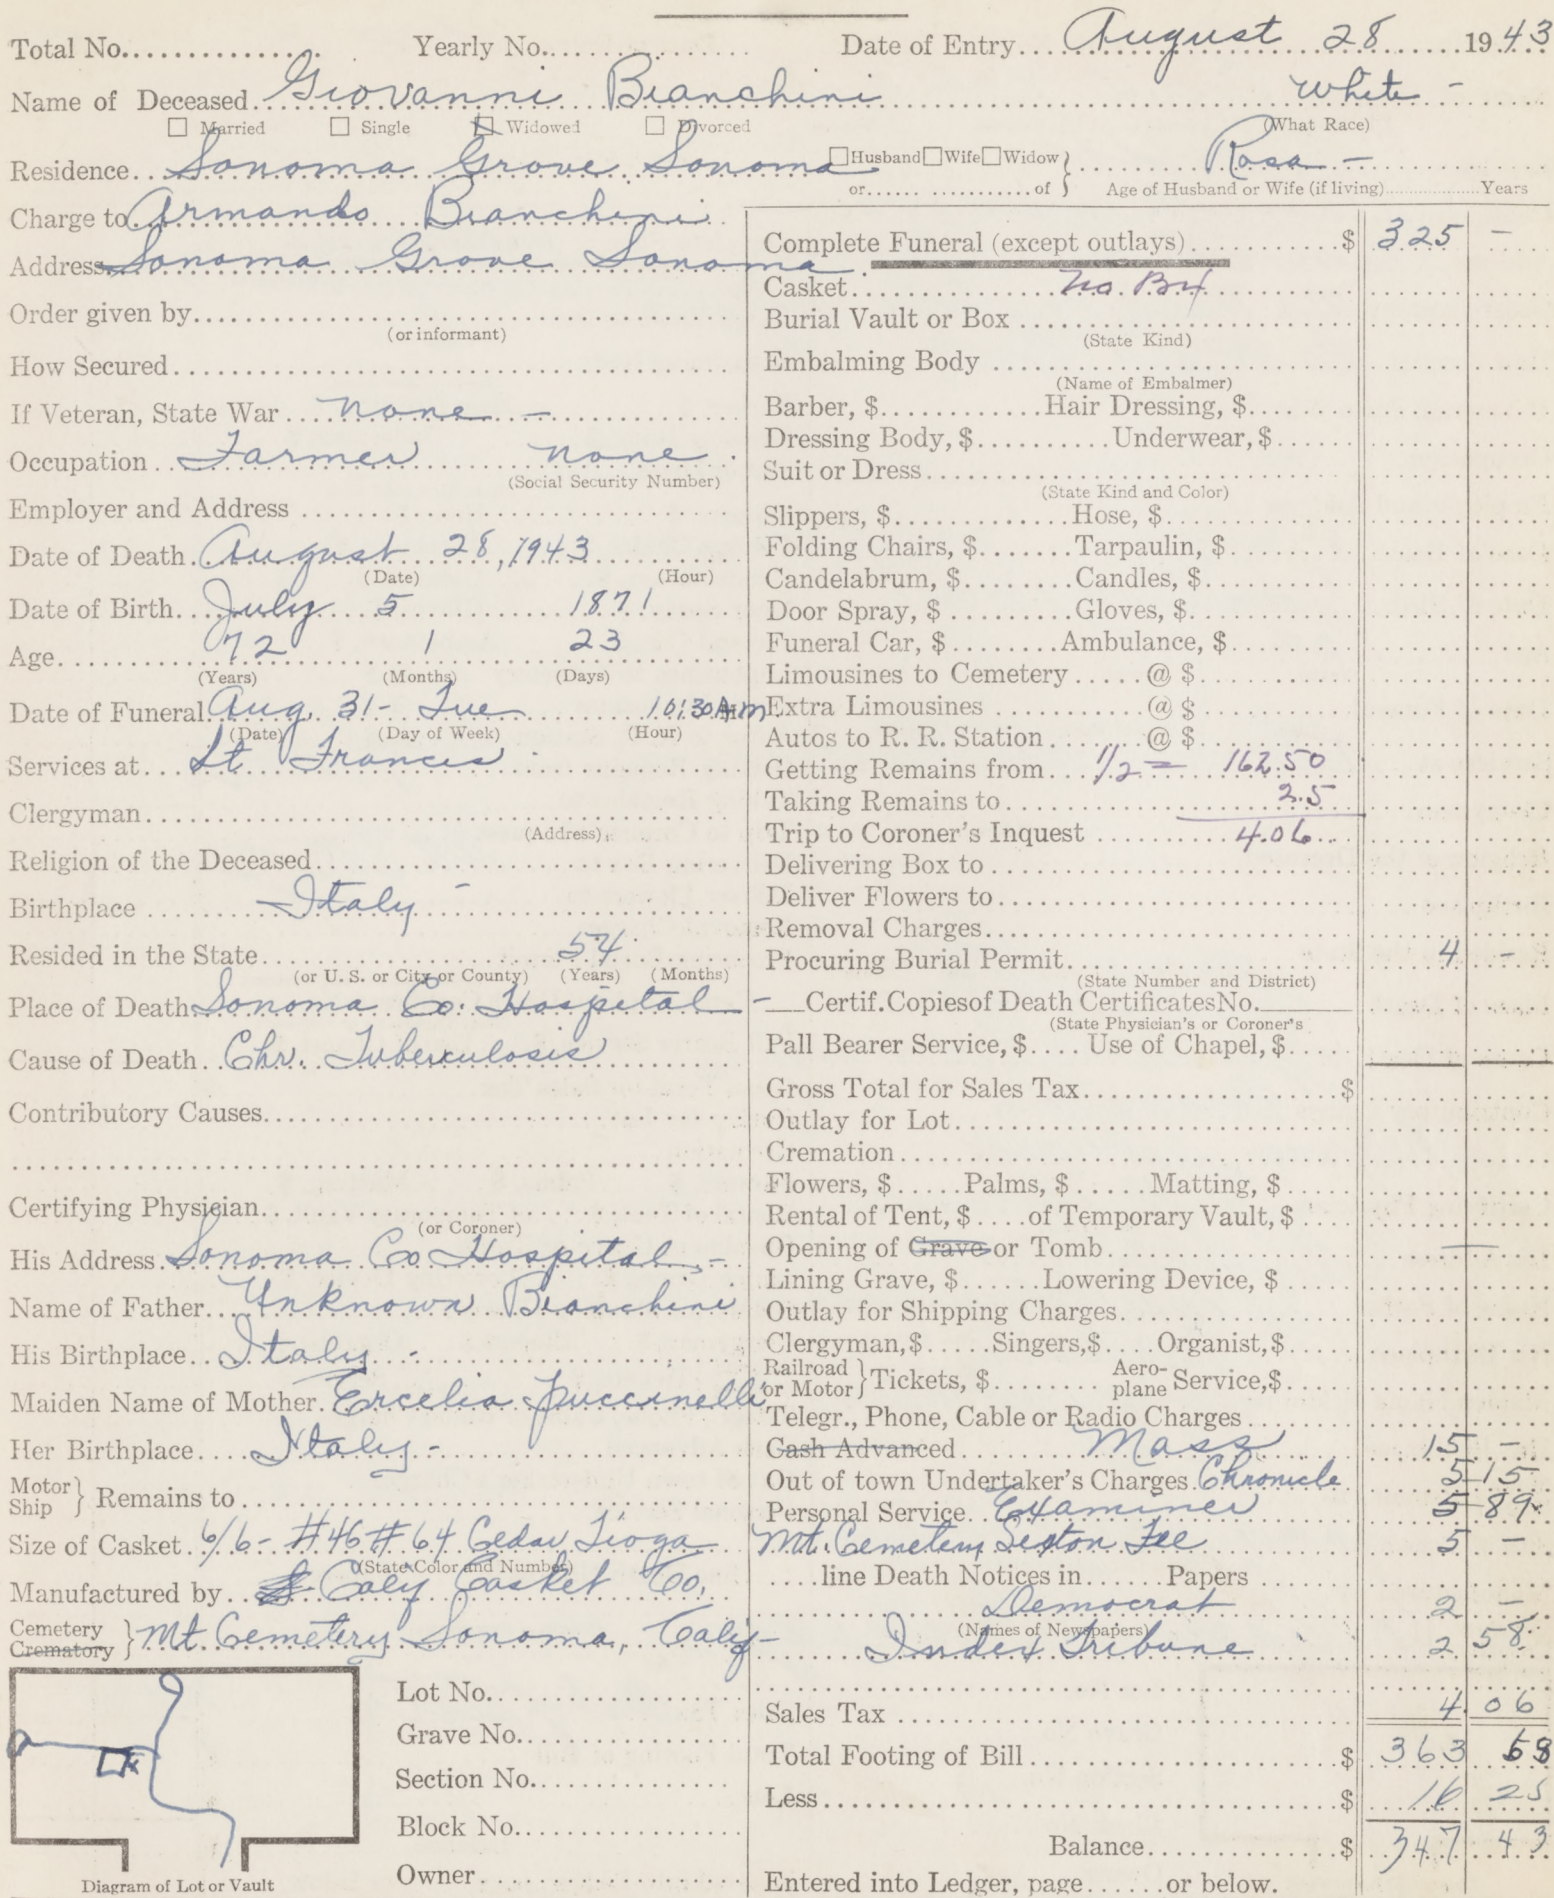 Total No. Yearly No. Date of Entry August 28 1943
Name of Deceased Giovanni Bianchini White -
Married Single Widowed Divorced (What Race)
Residence Sonoma Grove Sonoma Husband Wife Widow or of Rosa - Age of Husband or Wife (if living) Years
Charge to Armando Bianchini
Address Sonoma Grove Sonoma
Order given by
(or informant)
How Secured
If Veteran, State War none -
Occupation Farmer none
(Social Security Number)
Employer and Address
Date of Death August 28, 1943
(Date) (Hour)
Date of Birth July 5 1871
Age 72 1 23
(Years) (Months) (Days)
Date of Funeral Aug 31 - Tue 10:30 AM
(Date) (Day of Week) (Hour)
Services at St. Francis
Clergyman
(Address)
Religion of the Deceased
Birthplace Italy -
Resided in the State 54
(or U. S. or City or County) (Years) (Months)
Place of Death Sonoma Co. Hospital -
Cause of Death Chr. Tuberculosis
Contributory Causes
Certifying Physician
(or Coroner)
His Address Sonoma Co Hospital -
Name of Father Unknown Bianchini
His Birthplace Italy -
Maiden Name of Mother Ercelia Puccinelli
Her Birthplace Italy -
Motor Ship } Remains to
Size of Casket 6/6 - #46 #64 Cedar Tioga
(State Color and Number)
Manufactured by Calif Casket Co.
Cemetery Crematory } Mt. Cemetery Sonoma, Calif -
Lot No.
Grave No.
Section No.
Block No.
Owner
Diagram of Lot or Vault
Complete Funeral (except outlays) $ 325 -
Casket
Burial Vault or Box
(State Kind)
Embalming Body
(Name of Embalmer)
Barber, $ Hair Dressing, $
Dressing Body, $ Underwear, $
Suit or Dress
(State Kind and Color)
Slippers, $ Hose, $
Folding Chairs, $ Tarpaulin, $
Candelabrum, $ Candles, $
Door Spray, $ Gloves, $
Funeral Car, $ Ambulance, $
Limousines to Cemetery @ $
Extra Limousines @ $
Autos to R. R. Station @ $
Getting Remains from 1/2 = 162.50
Taking Remains to 2.5
Trip to Coroner's Inquest 4.06
Delivering Box to
Deliver Flowers to
Removal Charges
Procuring Burial Permit 4 -
(State Number and District)
Certif. Copies of Death Certificates No.
(State Physician's or Coroner's
Pall Bearer Service, $ Use of Chapel, $
Gross Total for Sales Tax $
Outlay for Lot
Cremation
Flowers, $ Palms, $ Matting, $
Rental of Tent, $ of Temporary Vault, $
Opening of Grave or Tomb
Lining Grave, $ Lowering Device, $
Outlay for Shipping Charges
Clergyman, $ Singers, $ Organist, $
Railroad or Motor } Tickets, $ Aeroplane Service, $
Telegr., Phone, Cable or Radio Charges
Cash Advanced Mass 15 -
Out of town Undertaker's Charges Chronicle 5 15
Personal Service Examiner 5 89
Mt. Cemetery Sexton Fee 5 -
line Death Notices in Papers
Democrat 2 -
(Names of Newspapers)
Index Tribune 2 58
Sales Tax 4 06
Total Footing of Bill $ 363 68
Less $ 16 25
Balance $ 347 43
Entered into Ledger, page or below.